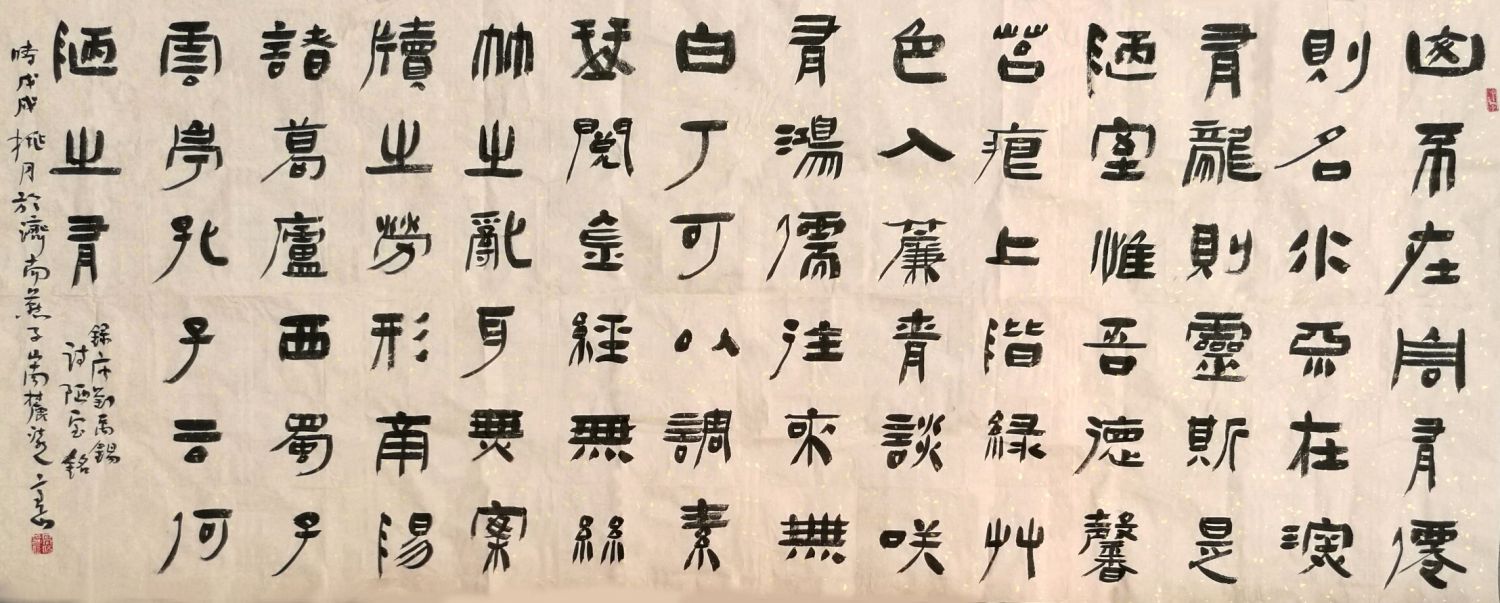 山不在高有僊
則名水不在深
有龍則靈斯是
陋室惟吾德馨
苔痕上階緑艸
色入簾青談咲
有鴻儒往來無
白丁可以調素
琴閲金經無絲
竹之亂耳無案
牘之勞形南陽
諸葛廬西蜀子
雲亭孔子云何
陋之有
録唐劉禹錫
詩陋室銘
時戊戌桃月於濟南燕子山南麓